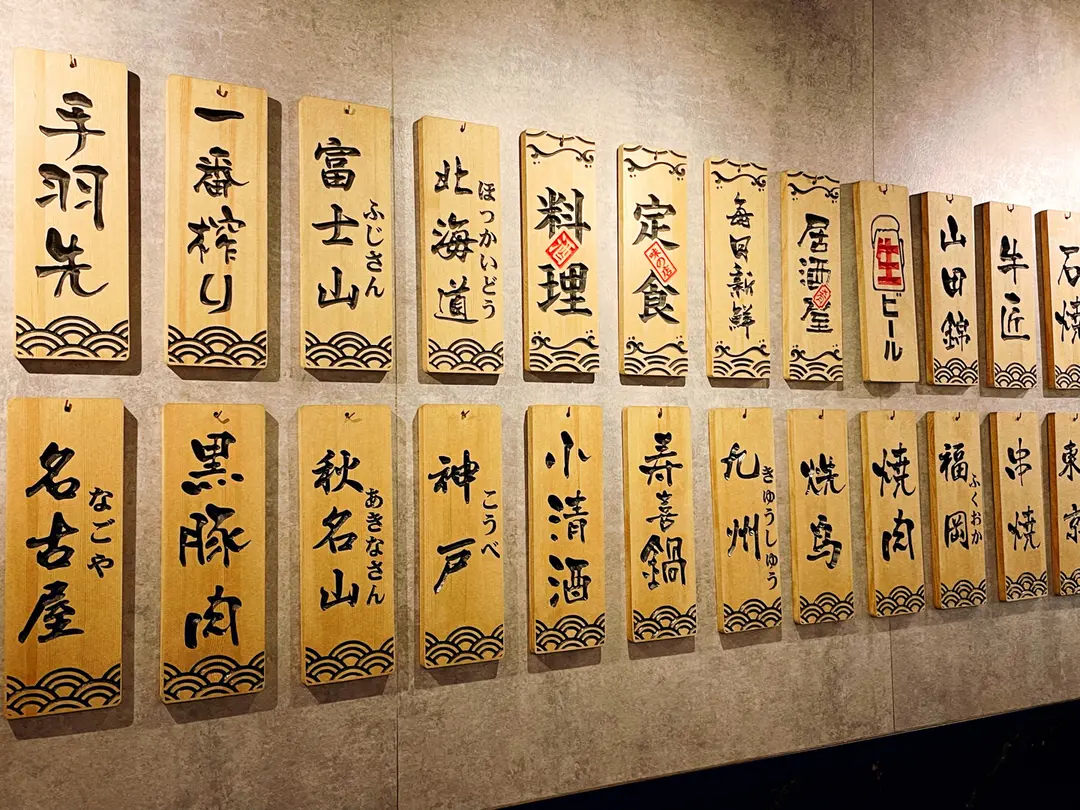 手羽先
一番搾り
富士山
ふじさん
北海道
ほっかいどう
料理
定食
味の店
毎日新鮮
居酒屋
生
ビール
山田錦
牛匠
石焼
名古屋
なごや
黒豚肉
秋名山
あきなさん
神戸
こうべ
小清酒
寿喜鍋
九州
きゅうしゅう
焼鳥
焼肉
福岡
ふくおか
串焼
東京